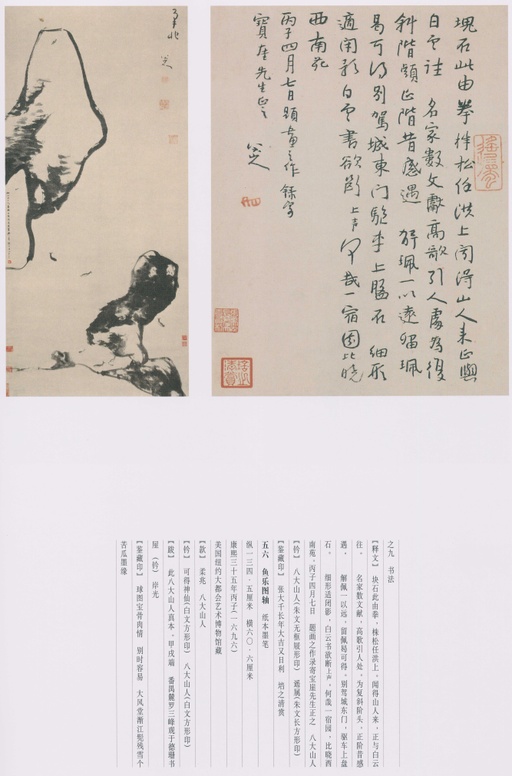 塊石此由拳株松任洪上聞得山人来正與
白雲往 名家數文獻高歌引人處為復
斜階頭正階昔感遇 解珮一以遠留珮
曷可得別駕城東門驅車上盤石 細形
適團影白雲書欲斷上声何哉一宿園比曉
西南苑
丙子四月七日題畫之作 錄寄
寶崖先生正之 八大山人
之九 书法
【释文】 块石此由拳，株松任洪上，闻得山人来，正与白云
往。 名家数文献，高歌引人处，为复斜阶头，正阶昔感
遇。 解佩一以远，留佩曷可得，别驾城东门，驱车上盘
石。 细形适团影，白云书欲断上声，何哉一宿园，比晓西
南苑。丙子四月七日 题画之作录寄宝崖先生正之 八大山人
【钤】 八大山人(朱文无框屐形印) 遥属(朱文长方形印)
【鉴藏印】 张大千长年大吉又日利 之清赏
五六 鱼乐图轴 纸本墨笔
纵一三四·五厘米 横六〇·六厘米
康熙三十五年丙子(一六九六)
美国纽约大都会艺术博物馆藏
【款】 柔兆 八大山人
【钤】 可得神仙(白文方形印) 八大山人(白文方形印)
【跋】 此八大山人真本，甲戌端 番禺罗三峰观于德珊书
屋 (钤) 岸光
【鉴藏印】 球图宝骨肉情 别时容易 大风堂渐江髡残雪个
苦瓜墨缘